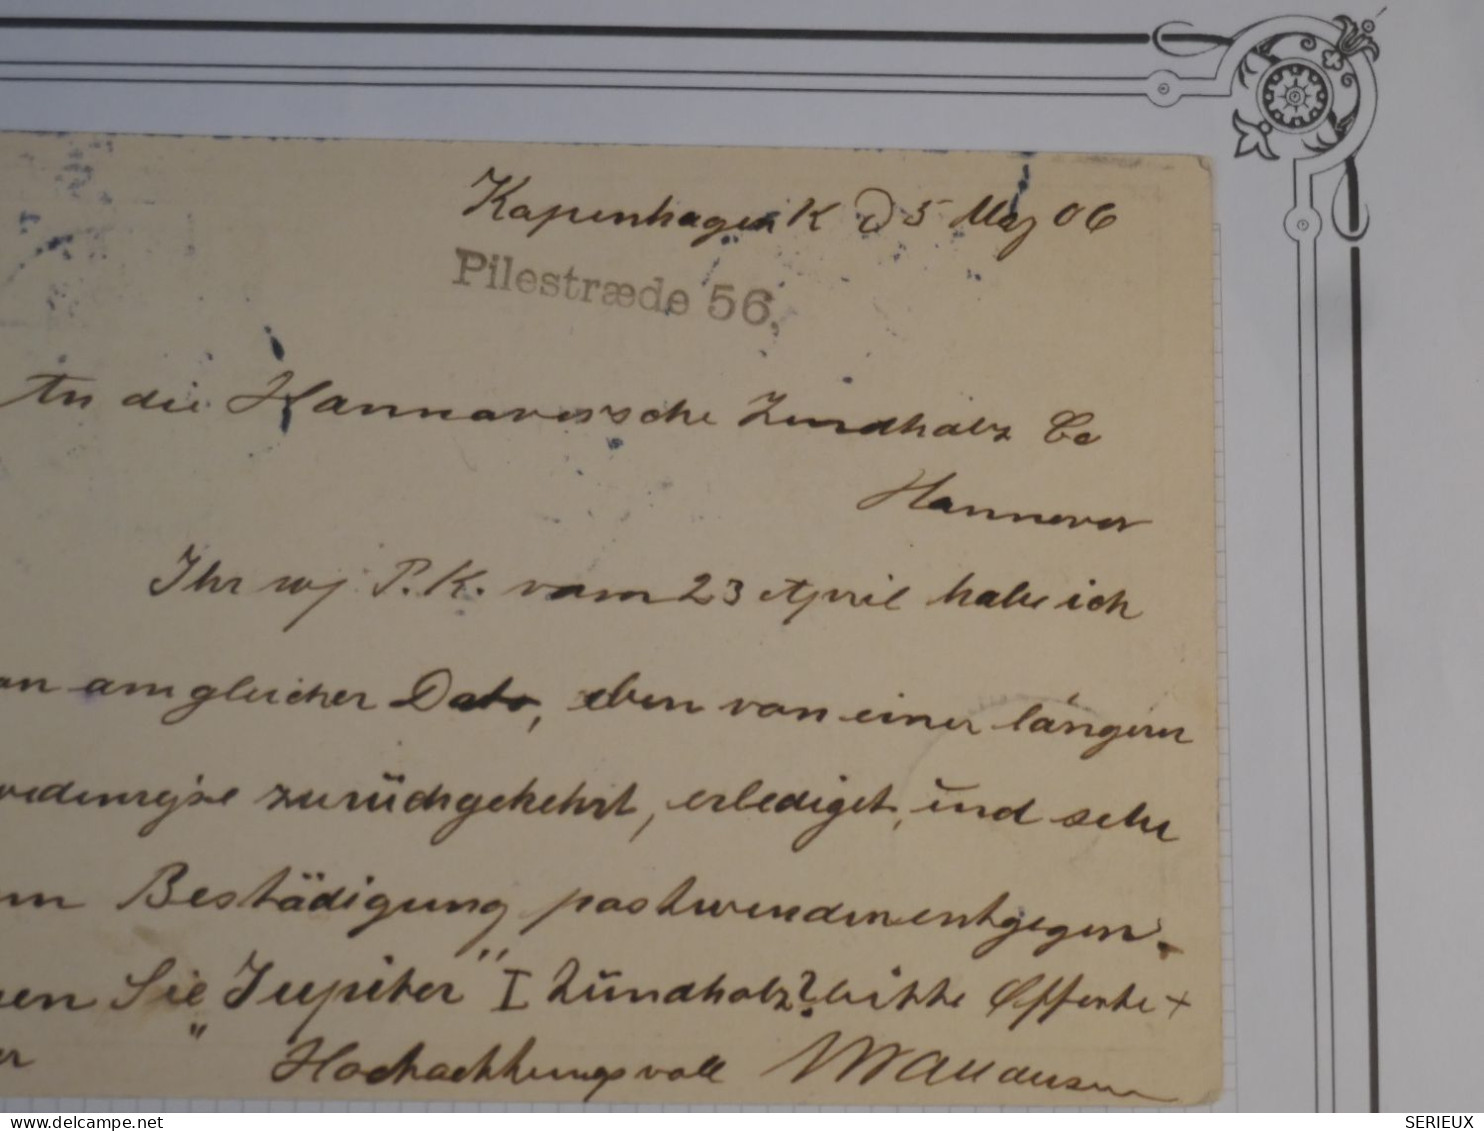 Kopenhagen K D 5 May 06
Pilestræde 56,
An die Hannoversche Zündholz Co
Hannover
Ihr wj P.K. vom 23 April habe ich
am gleicher Dato, eben von einer längern
zurückgekehrt, erlediget, und sehe
Bestädigung postwenden entgegen.
Sie „Jupiter" I Zündholz? bitte Offerte +
Hochachtungsvoll
SERIEUX